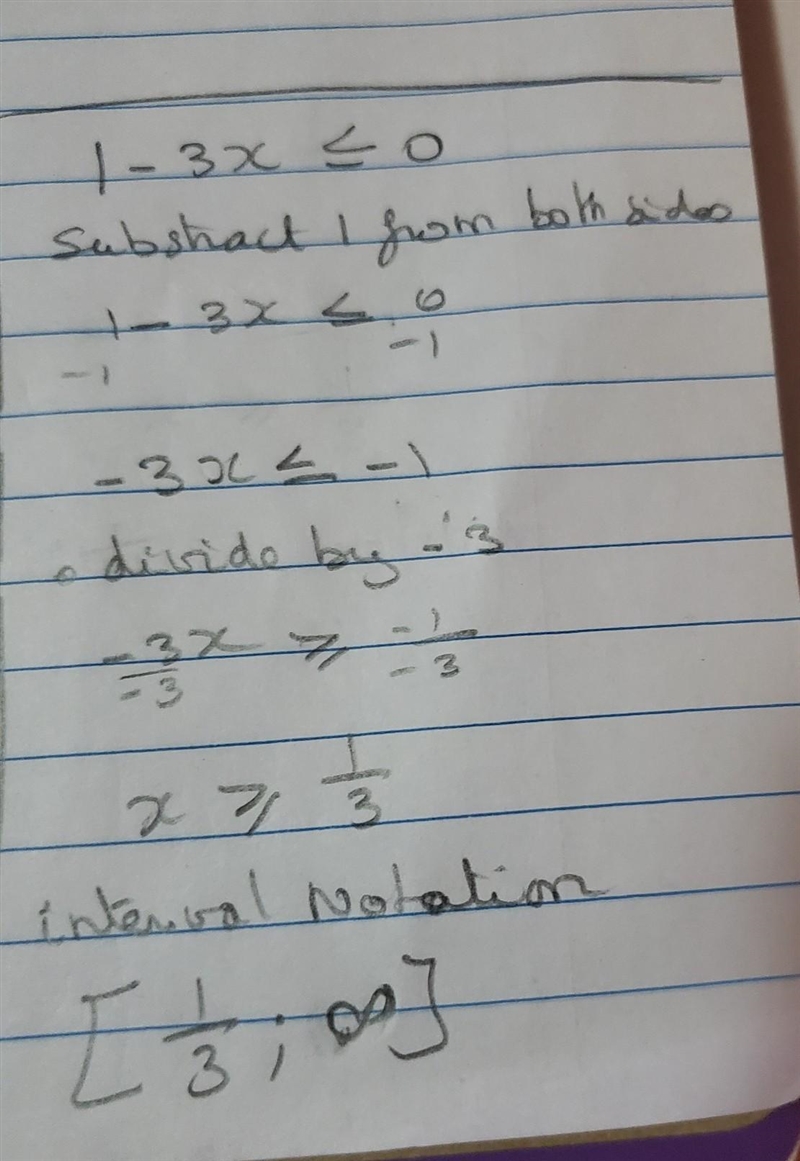 1 - 3x ≤ 0
Substract 1 from both sides
1 - 3x ≤ 0
-1 -1
-3x ≤ -1
. divide by -3
-3x/-3 ≥ -1/-3
x ≥ 1/3
interval Notation
[1/3 ; ∞]